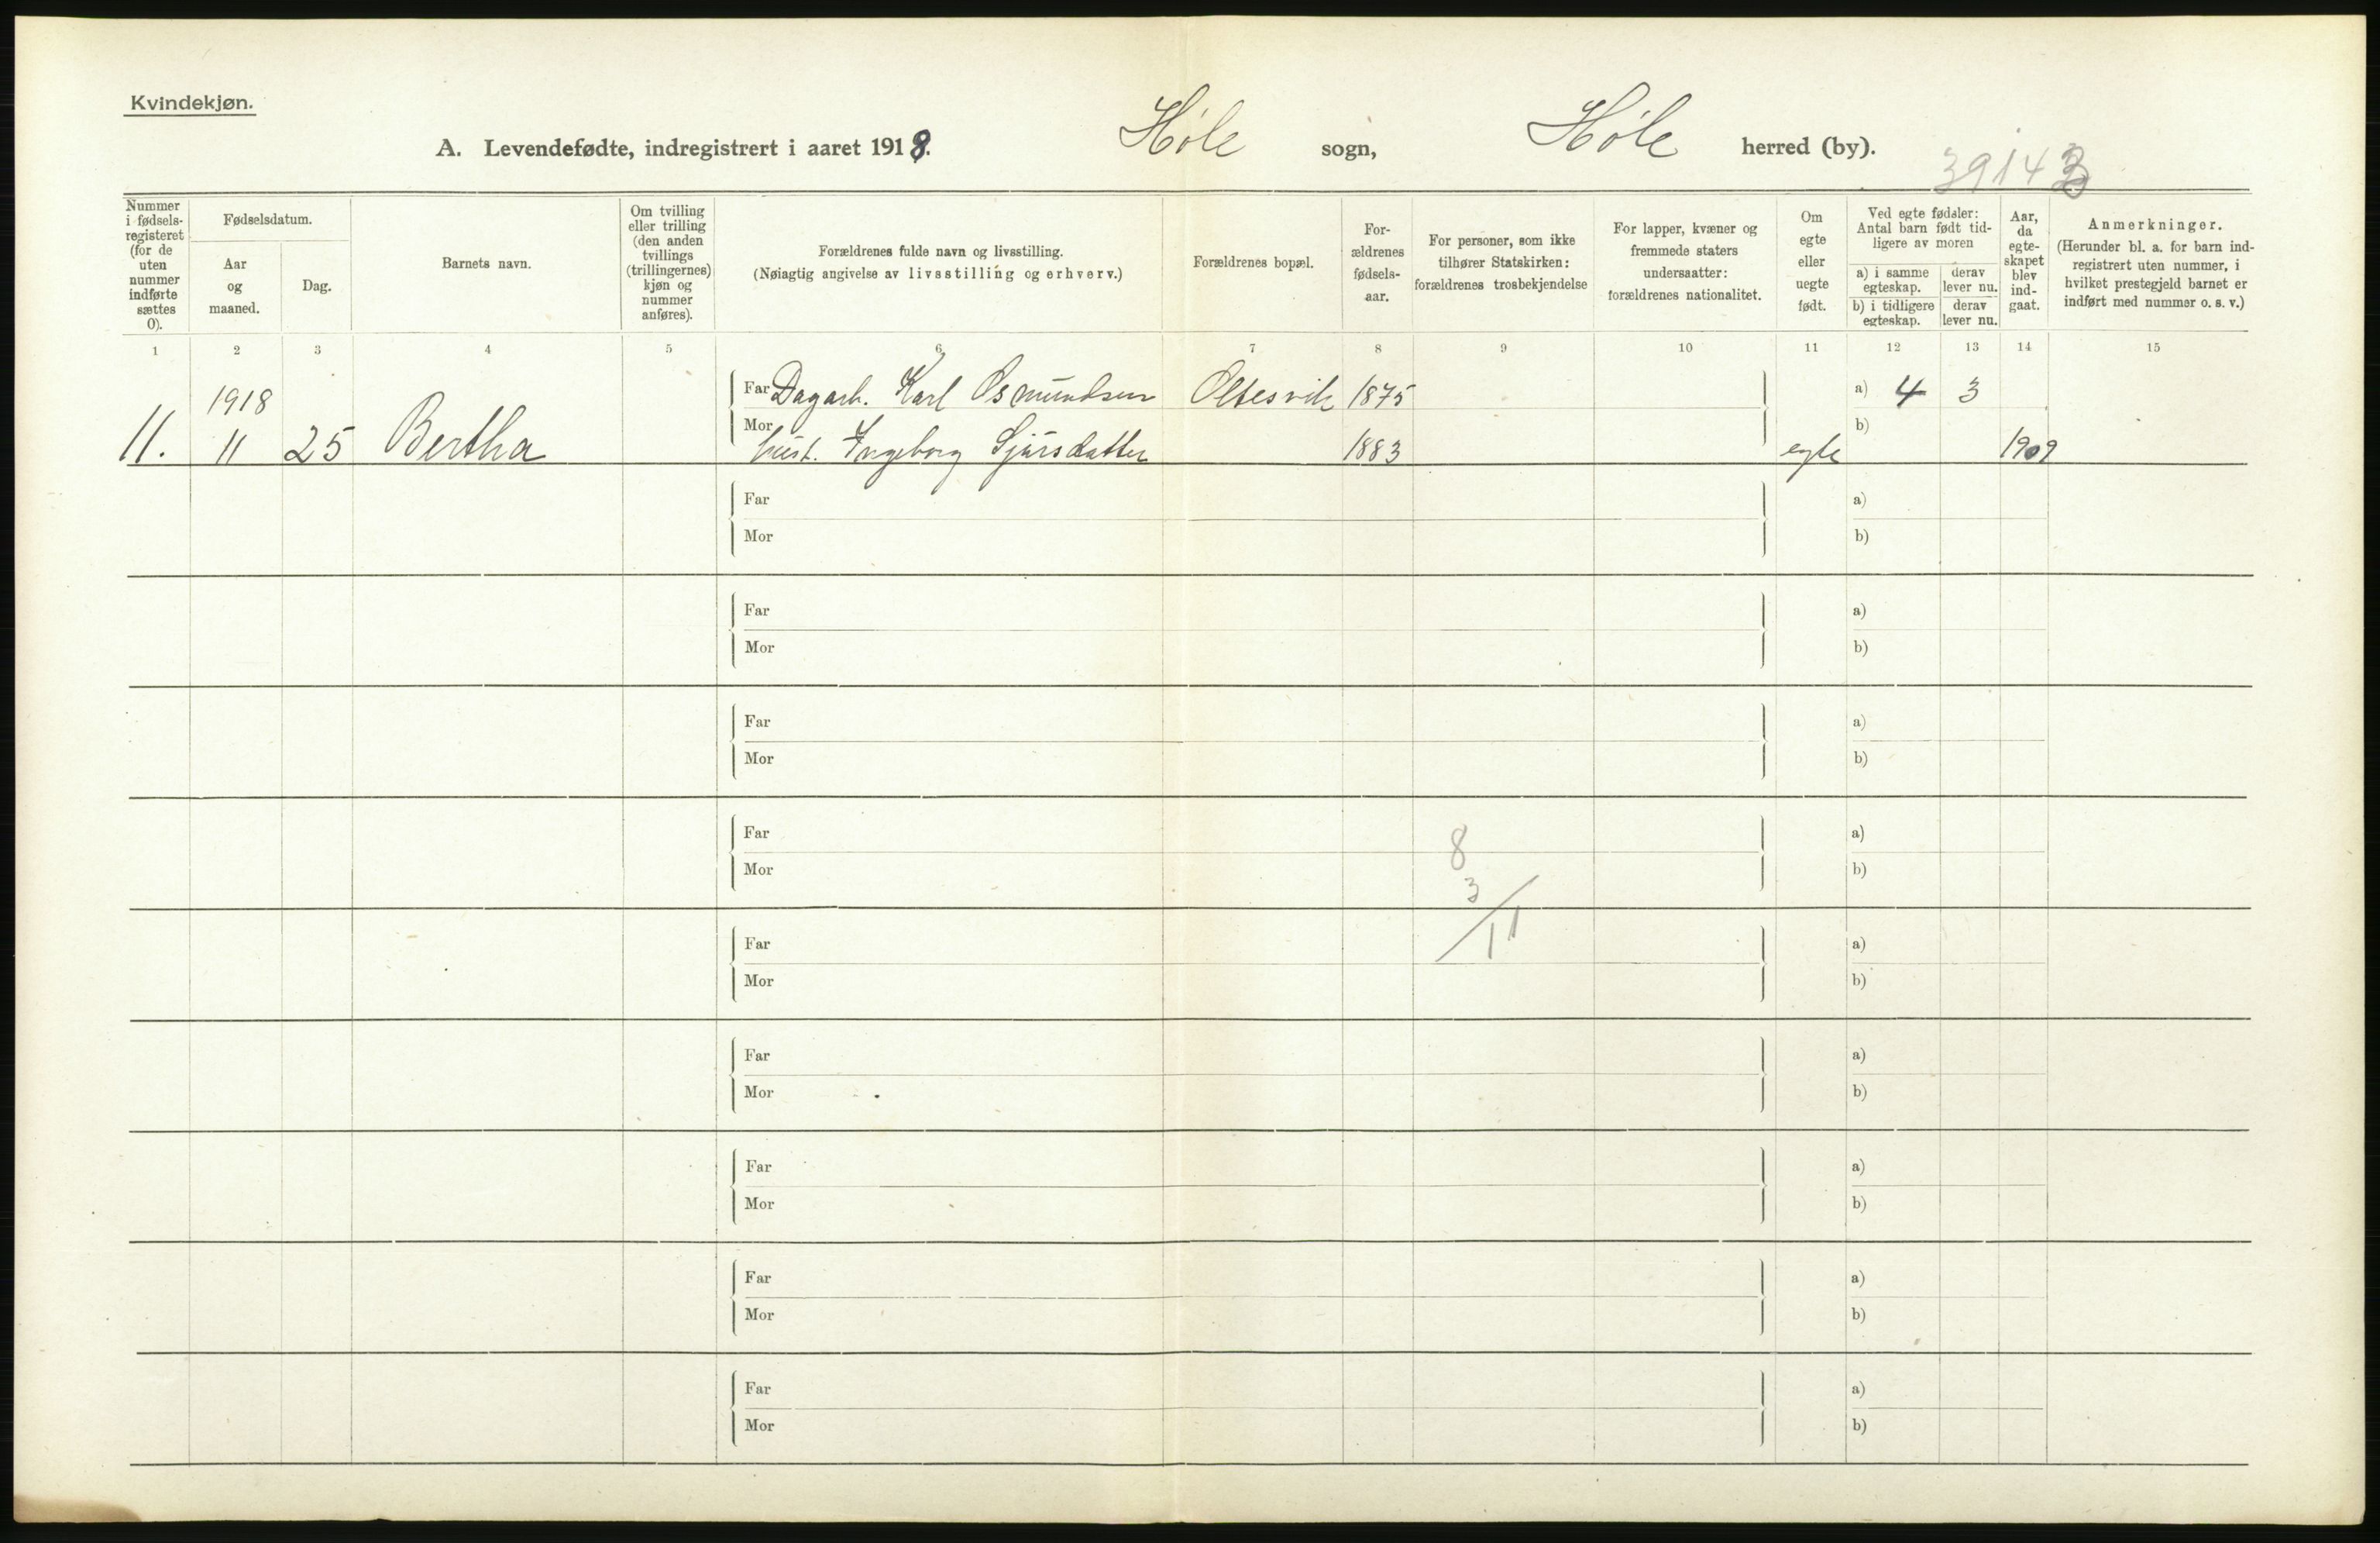 Kvindekjøn.
A. Levendefødte, indregistrert i aaret 1918. Høle sogn, Høle herred (by).
3914
Nummer i fødselsregisteret (for de uten nummer indførte sættes 0).
Fødselsdatum.
Aar og maaned.
Dag.
Barnets navn.
Om tvilling eller trilling (den anden tvillings (trillingernes) kjøn og nummer anføres).
Forældrenes fulde navn og livsstilling.
(Nøiagtig angivelse av livsstilling og erhverv.)
Forældrenes bopæl.
Forældrenes fødselsaar.
For personer, som ikke tilhører Statskirken: forældrenes trosbekjendelse
For lapper, kvæner og fremmede staters undersaatter: forældrenes nationalitet.
Om egte eller uegte født.
Ved egte fødsler: Antal barn født tidligere av moren
a) i samme egteskap.
derav lever nu.
b) i tidligere egteskap.
derav lever nu.
Aar, da egteskapet blev indgaat.
Anmerkninger.
(Herunder bl. a. for barn indregistrert uten nummer, i hvilket prestegjeld barnet er indført med nummer o. s. v.)
1 2 3 4 5 6 7 8 9 10 11 12 13 14 15
1918 Far Dagarb. Karl Osmundsen Oltesvik 1875 a) 4 3
11. 11 25 Bertha Mor hust. Ingeborg Sjursdatter 1883 egte b) 1909
Far a)
Mor b)
Far a)
Mor b)
Far a)
Mor b)
Far 8 a)
Mor 3 b)
Far 11 a)
Mor b)
Far a)
Mor b)
Far a)
Mor b)
Far a)
Mor b)
Far a)
Mor b)